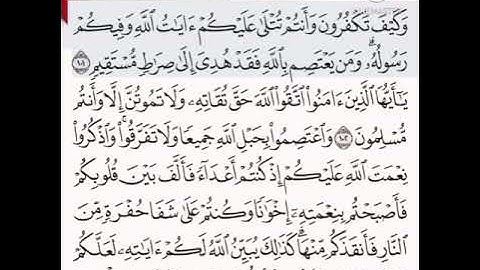 وَكَيْفَ تَكْفُرُونَ وَأَنتُمْ تُتْلَىٰ عَلَيْكُمْ ءَايَٰتُ ٱللَّهِ وَفِيكُمْ
رَسُولُهُۥ ۗ وَمَن يَعْتَصِم بِٱللَّهِ فَقَدْ هُدِىَ إِلَىٰ صِرَٰطٍ مُّسْتَقِيمٍ ١٠١
يَٰٓأَيُّهَا ٱلَّذِينَ ءَامَنُوا۟ ٱتَّقُوا۟ ٱللَّهَ حَقَّ تُقَاتِهِۦ وَلَا تَمُوتُنَّ إِلَّا وَأَنتُم
مُّسْلِمُونَ ١٠٢ وَٱعْتَصِمُوا۟ بِحَبْلِ ٱللَّهِ جَمِيعًا وَلَا تَفَرَّقُوا۟ ۚ وَٱذْكُرُوا۟
نِعْمَتَ ٱللَّهِ عَلَيْكُمْ إِذْ كُنتُمْ أَعْدَآءً فَأَلَّفَ بَيْنَ قُلُوبِكُمْ
فَأَصْبَحْتُم بِنِعْمَتِهِۦٓ إِخْوَٰنًا وَكُنتُمْ عَلَىٰ شَفَا حُفْرَةٍ مِّنَ
ٱلنَّارِ فَأَنقَذَكُم مِّنْهَا ۗ كَذَٰلِكَ يُبَيِّنُ ٱللَّهُ لَكُمْ ءَايَٰتِهِۦ لَعَلَّكُمْ